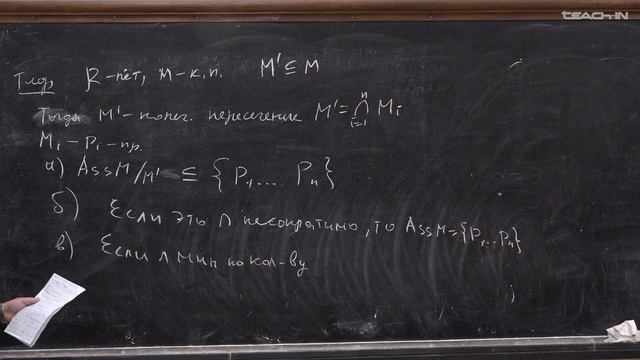 TEACH-IN
Теор. R-нёт, M-к.п. M' ⊆ M
Тогда M'-конеч. пересечение M' = ⋂ᵢ₌₁ⁿ Mᵢ
Mᵢ - Pᵢ - пр.
а) Ass M/M' ⊆ {P₁, ... Pₙ}
б) Если это ∩ несократимо, то Ass M = {P₁...Pₙ}
в) Если ∩ мин по кол-ву